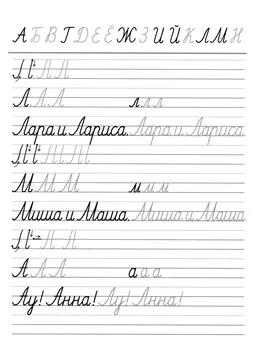 А Б В Г Д Е Ё Ж З И Й К Л М Н
Л Л
Л Л Л л л л
Лара и Лариса. Лара и Лариса.
М М М м м м
Миша и Маша. Миша и Маша.
А А
А А А а а а
Ау! Анна! Ау! Анна!